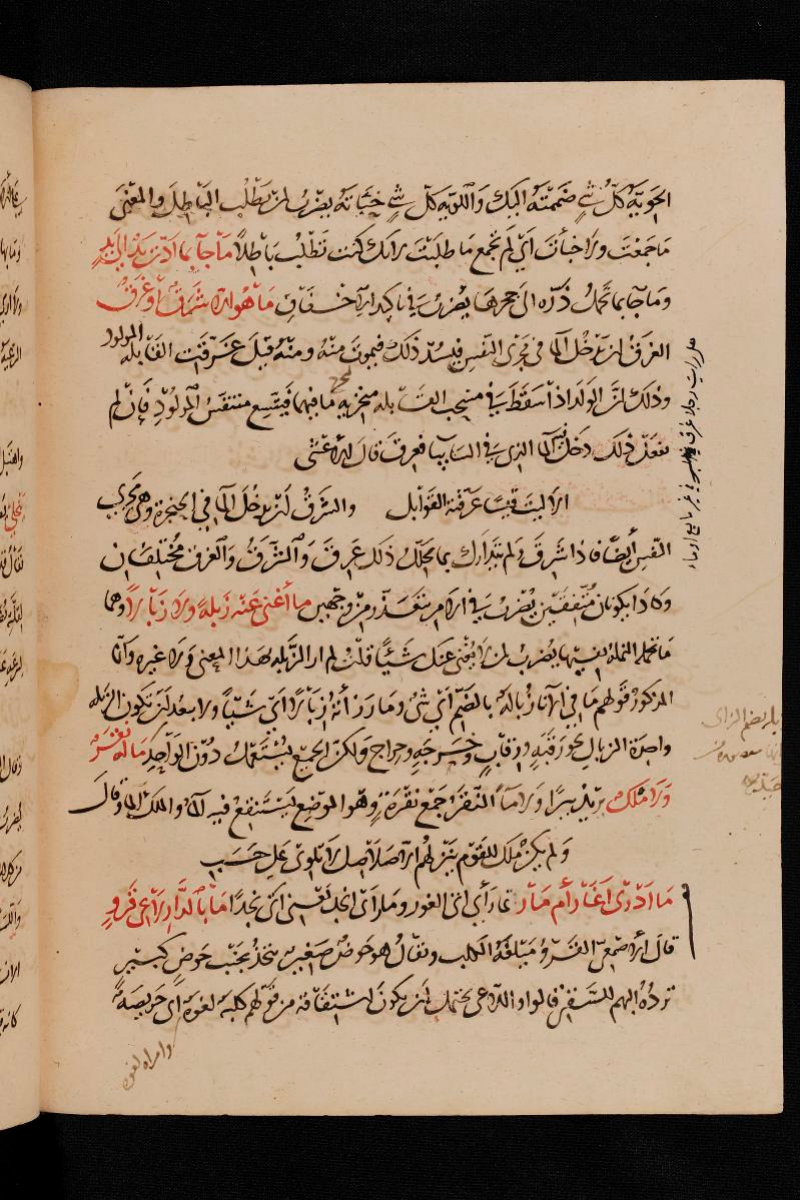 الحويّة كلُّ شيٍ ضممتَهُ اليك واللويّة كلّ شيٍ خبّأته يضرب لمن يطلب الباطل والمعنى
ما جمعتَ ولا خبأتَ اي لم تجمع ما طلبتَ لانك كنت تطلب باطلًا ما جآ بما ادّت يدٌ الى يدٍ
وما جآ بما تحمل ذرّه الى جحرها يضرب في تاكيد الاخفاق ما هو الا شرقٌ او غرقٌ
الغرق ان يدخل الما في مجرى النفس فيسدّ ذلك فيموت منه ومنه قيل غرّقت القابله المولود
وذلك لان الولد اذا سقط مسحت القابله منخريه ليخرج ما فيهما فيتسع متنفس المولود فان لم
تفعل ذلك دخل الما الذي في السابيا فغرق قال الاعشى
الا ليت قيسًا غرّقته القوابل والشرق ان يدخل الما في الحنجرة وهي مجرى
النفس ايضًا فاذا شرق ولم يتدارك بما يحلل ذلك غرق والشرق والغرق مختلفان
وكادا يكونان متفقين يضرب في الامر يتعذر من وجهين ما أغنى عنه زبلةً ولا زبالًا وهما
ما تحمله النملة بفيها يضرب لمن لا يغنى عنك شيئًا قلت لم ار الزبله بهذا المعنى ولا غيره وانما
المذكور قولهم ما في الاناء زبالة بالضم اي شى وما رزأته زبالًا اي شيئًا ولا يبعد ان تكون الزبله
واحدة الزبال نحو رقبةٍ ورقابٍ وحرجةٍ وحراج ولكن الجمع يستعمل دون الواحد ما له نقرٌ
ولا ملكٌ يريد بيرًا ولا مآءً النقر جمع نقرة وهو الموضع يستنقع فيه المآ والملك الما وقال
ولم يكن ملك للقوم ينزلهم الا صلاصل لا تلوى على حسب
ما ادرى اغار أم مار غار أي اتى الغور ومار اى اتى نجد يعنى اتى نجدًا ما بالدار لاعى قرو
قال الاصمعي القرو ميلغة الكلب ويقال هو حوض صغير يتخذ بجنب حوض كبير
ترده البهم للسقي قالوا واللاعى يحتمل ان يكون اشتقاقه من قولهم كلبة لعوة اى حريصة
وامراه لعوه